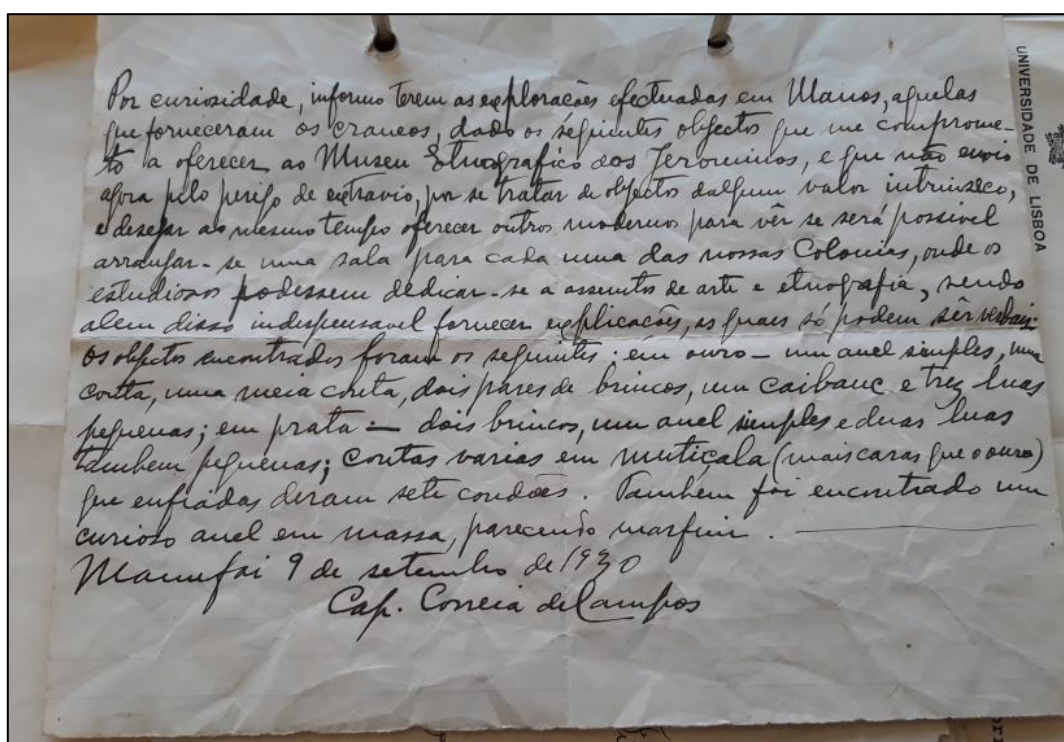 Por curiosidade, informo terem as explorações efectuadas em Manos, aquelas
que forneceram os craneos, dado os séguintes objectos que me comprome-
to a oferecer ao Museu Etnografico dos Jeronimos, e que não envio
agora pelo perigo de extravio, por se tratar de objectos dalgum valor intrinseco,
e desejar ao mesmo tempo oferecer outros modernos para vêr se será possivel
arranjar-se uma sala para cada uma das nossas Colonias, onde os
estudiosos podessem dedicar-se a assuntos de arte e etnografia, sendo
alem disso indispensavel fornecer explicações, as quais só podem sêr verbais.
Os objectos encontrados foram os seguintes: em ouro - um anel simples, uma
conta, uma meia conta, dois pares de brincos, um caibauc e trez luas
pequenas; em prata - dois brincos, um anel simples e duas luas
tambem pequenas; contas varias em mutiçala (mais caras que o ouro)
que enfiadas deram sete cordões. Tambem foi encontrado um
curioso anel em massa, parecendo marfim.
Manufai 9 de setembro de 1930
Cap. Correia de Campos
UNIVERSIDADE DE LISBOA